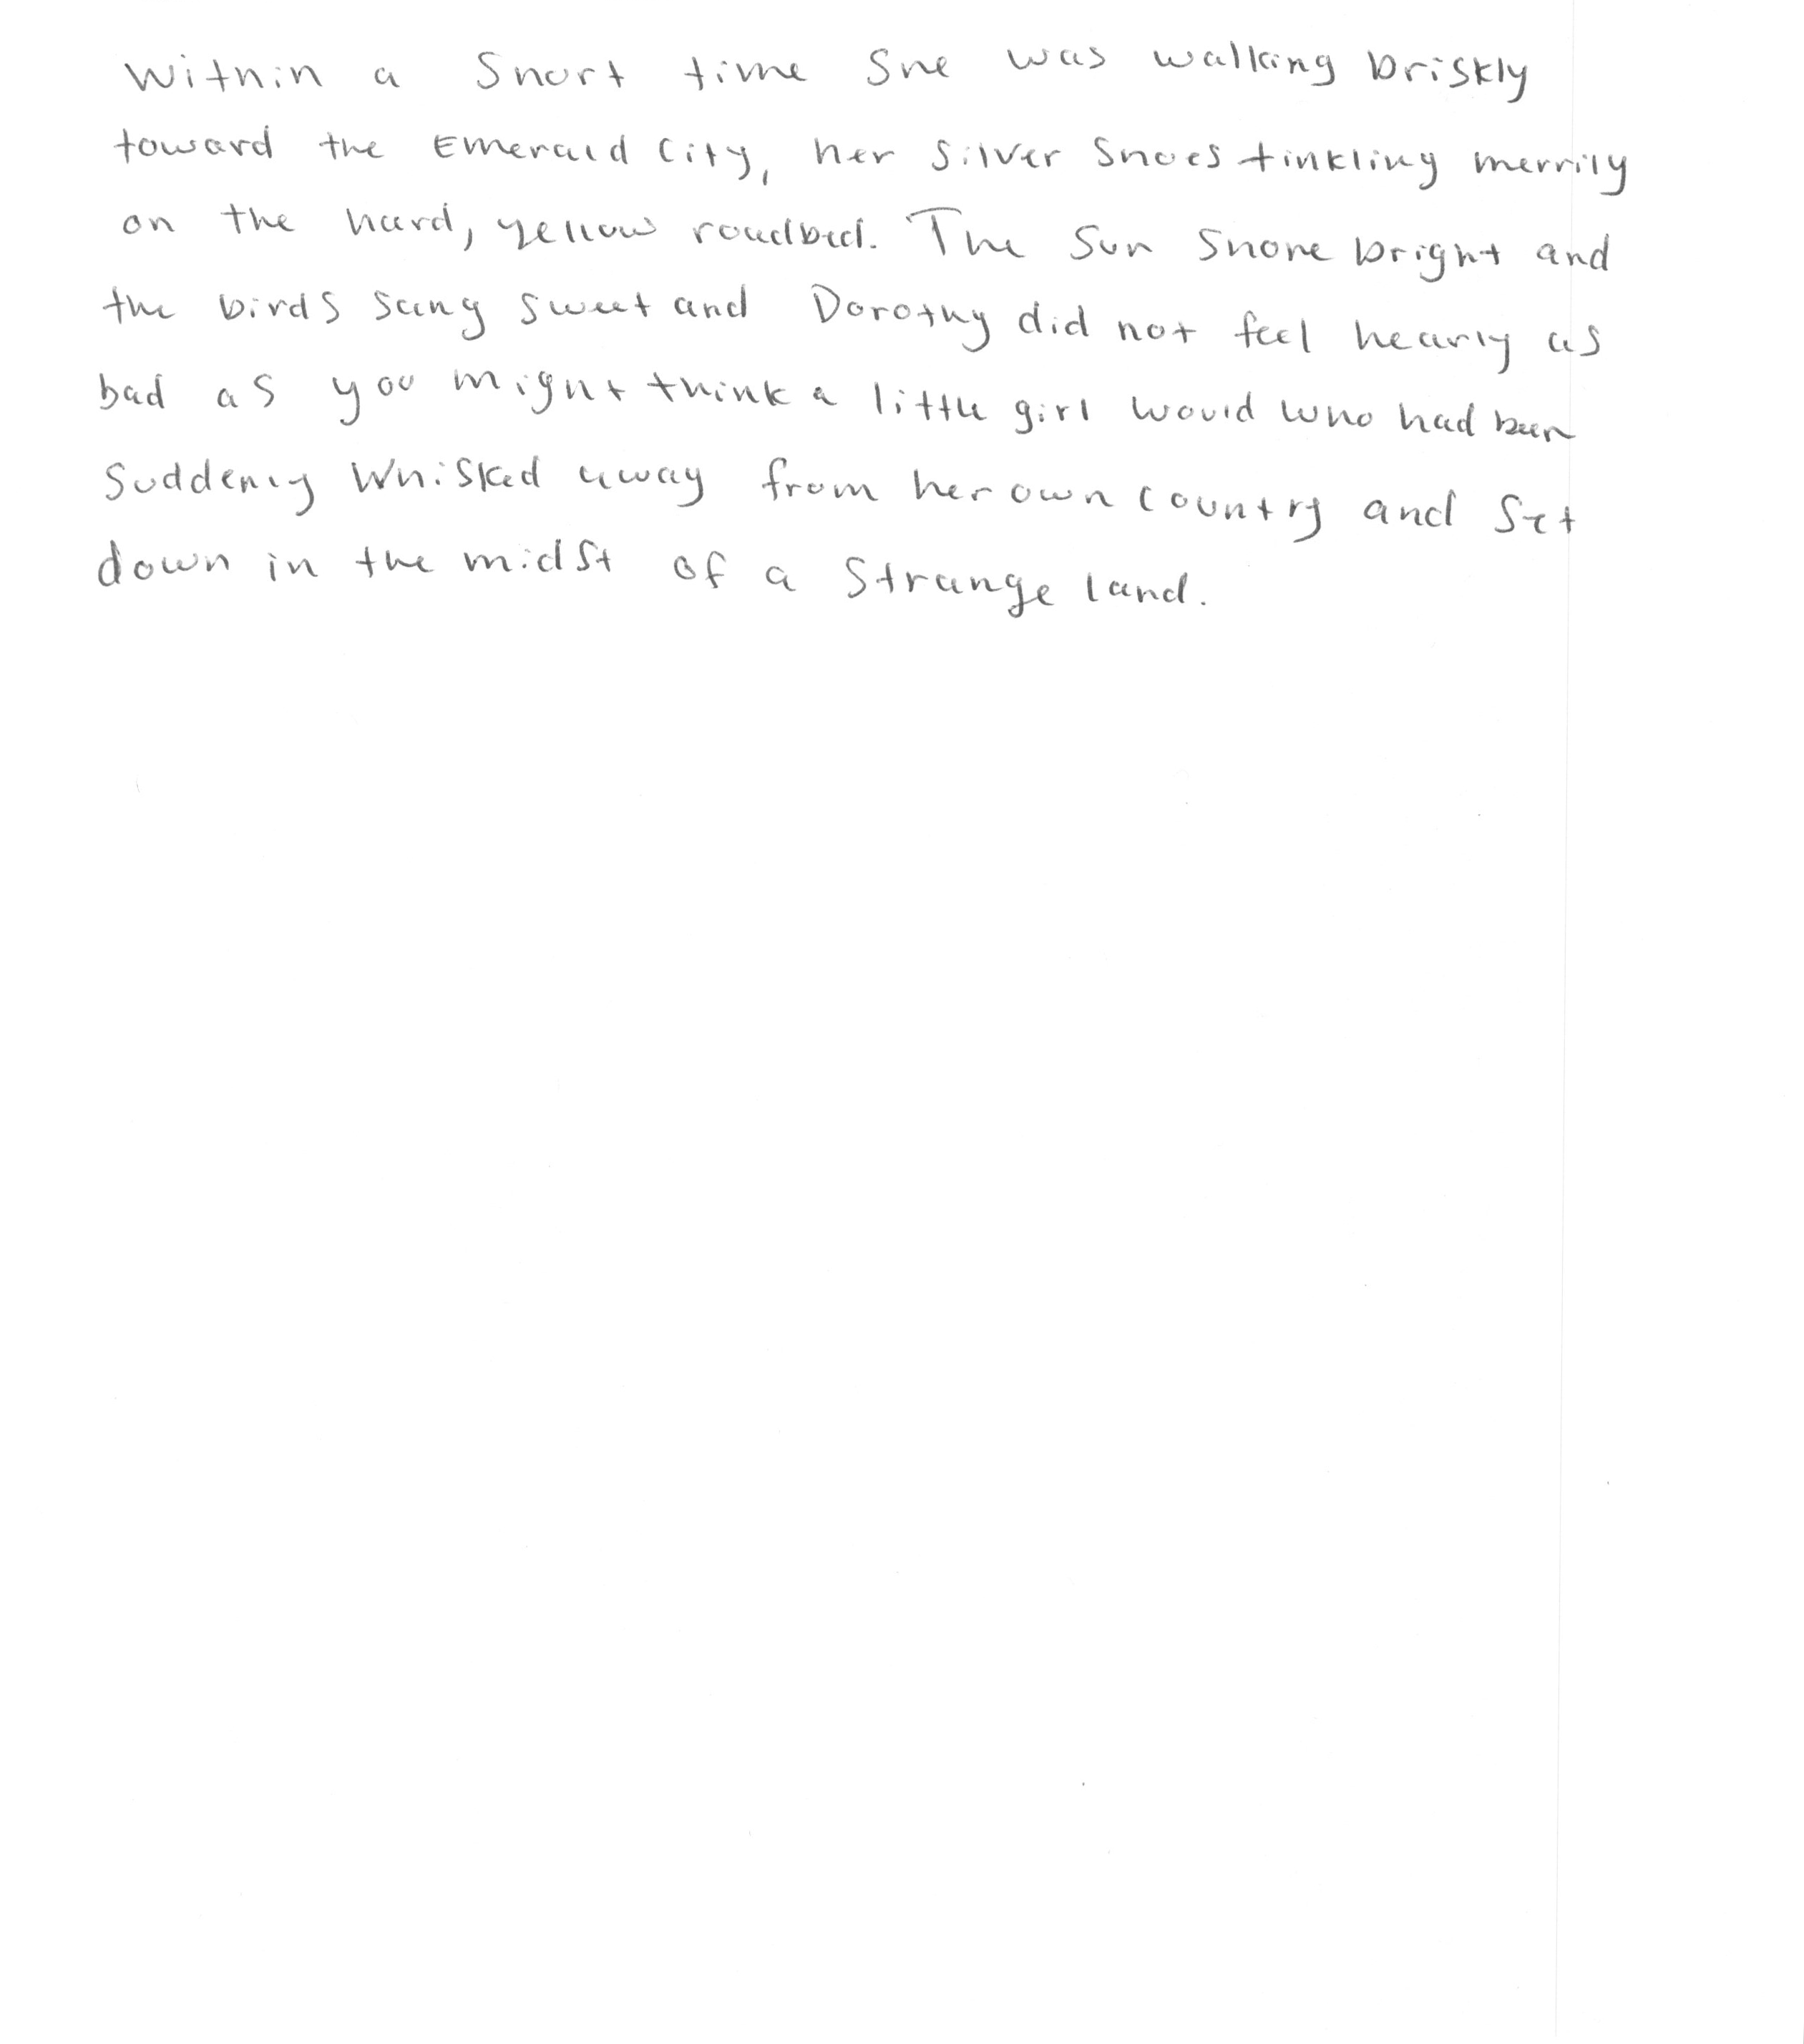 Within a short time she was walking briskly
toward the Emerald City, her silver shoes tinkling merrily
on the hard, yellow roadbed. The sun shone bright and
the birds sang sweet and Dorothy did not feel nearly as
bad as you might think a little girl would who had been
suddenly whisked away from her own country and set
down in the midst of a strange land.